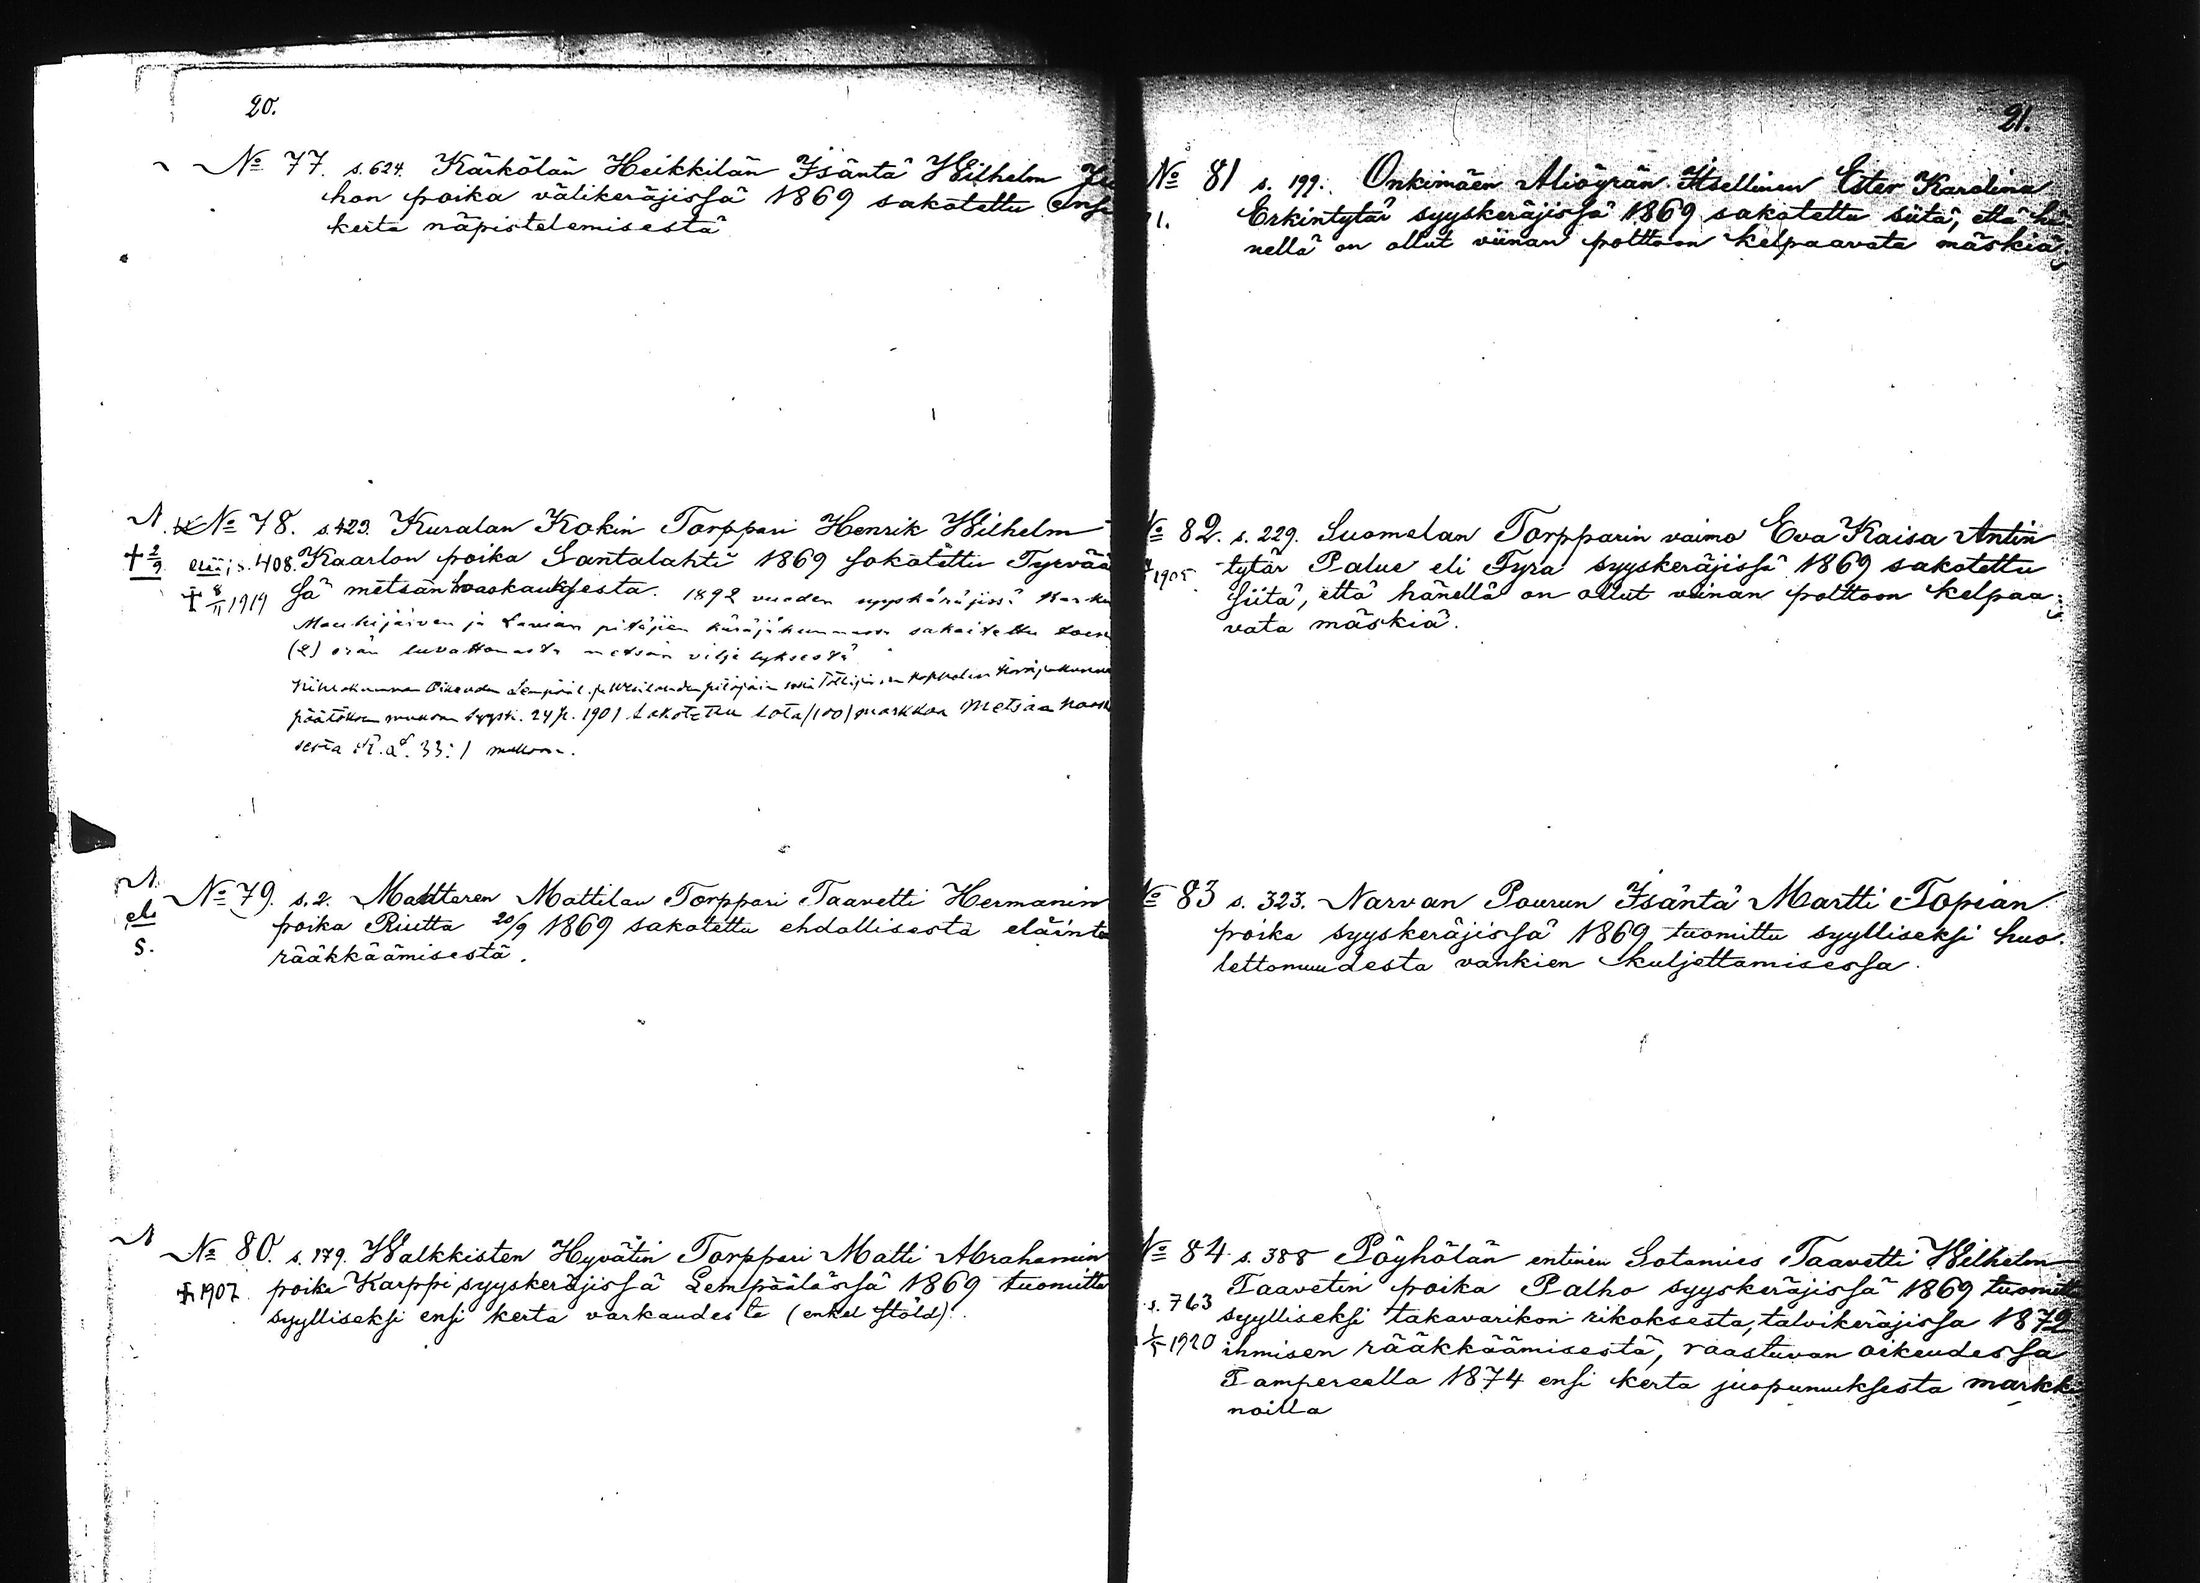 20.
№ 77. s. 624. Kärkölän Heikkilän Isäntä Wilhelm Ju
hon poika välikeräjissä 1869 sakotettu ensi
kerta näpistelemisestä
N. № 78. s. 423. Kuralan Kokin Torppari Henrik Wilhelm
+ 2/9 s. 408. Kaarlon poika Santalahti 1869 sakotettu Tyrvää
+ 8/11 1919 sä metsän haaskauksesta. 1892 vuoden syyskäräjissä
Mouhijärven ja Lavian pitäjien käräjäkunnassa sakoitettu
(2) luvattomasta metsän viljelyksestä
Lempäälä ja Wesilahden pitäjäin sekä Tottijärven kappelin käräjäkunnan
päätöksen mukaan syysk. 24 p. 1901 sakotettu sata /100/ markkaa metsän
sesta R.L. 33: 1 mukaan.
N. № 79. s. 2. Mattilan Torppari Taavetti Hermanin
el. poika Riutta 20/9 1869 sakotettu ehdallisesta eläinte
s. rääkkäämisestä.
N № 80. s. 179. Walkkisten Hyvätin Torppari Matti Abrahamin
+ 1907. poika Karppi syyskeräjissä Lempäälässä 1869 tuomittu
syylliseksi ensi kerta varkaudesta (enkel stöld).
21.
№ 81 s. 199. Onkimäen Aliöyrän Itsellinen Ester Karolina
Erkintytär syyskeräjissä 1869 sakotettu siitä, että hä
nellä on ollut viinan polttoon kelpaavata mäskiä
№ 82. s. 229. Suomelan Torpparin vaimo Eva Kaisa Antin
1905. tytär Palue eli Fyra syyskeräjissä 1869 sakotettu
siitä, että hänellä on ollut viinan polttoon kelpaa
vata mäskiä.
№ 83 s. 323. Narvan Pourun Isäntä Martti Topian
poika syyskeräjissä 1869 tuomittu syylliseksi huo
lettomuudesta vankien kuljettamisessa.
№ 84 s. 388 Pöyhölän entinen Sotamies Taavetti Wilhelm
Taavetin poika Palho syyskeräjissä 1869 tuomittu
s. 763 syylliseksi takavarikon rikoksesta, talvikeräjissa 1872
1920 ihmisen rääkkäämisestä, raastuvan oikeudessa
Tampereella 1874 ensi kerta juopumuksesta markki
noilla